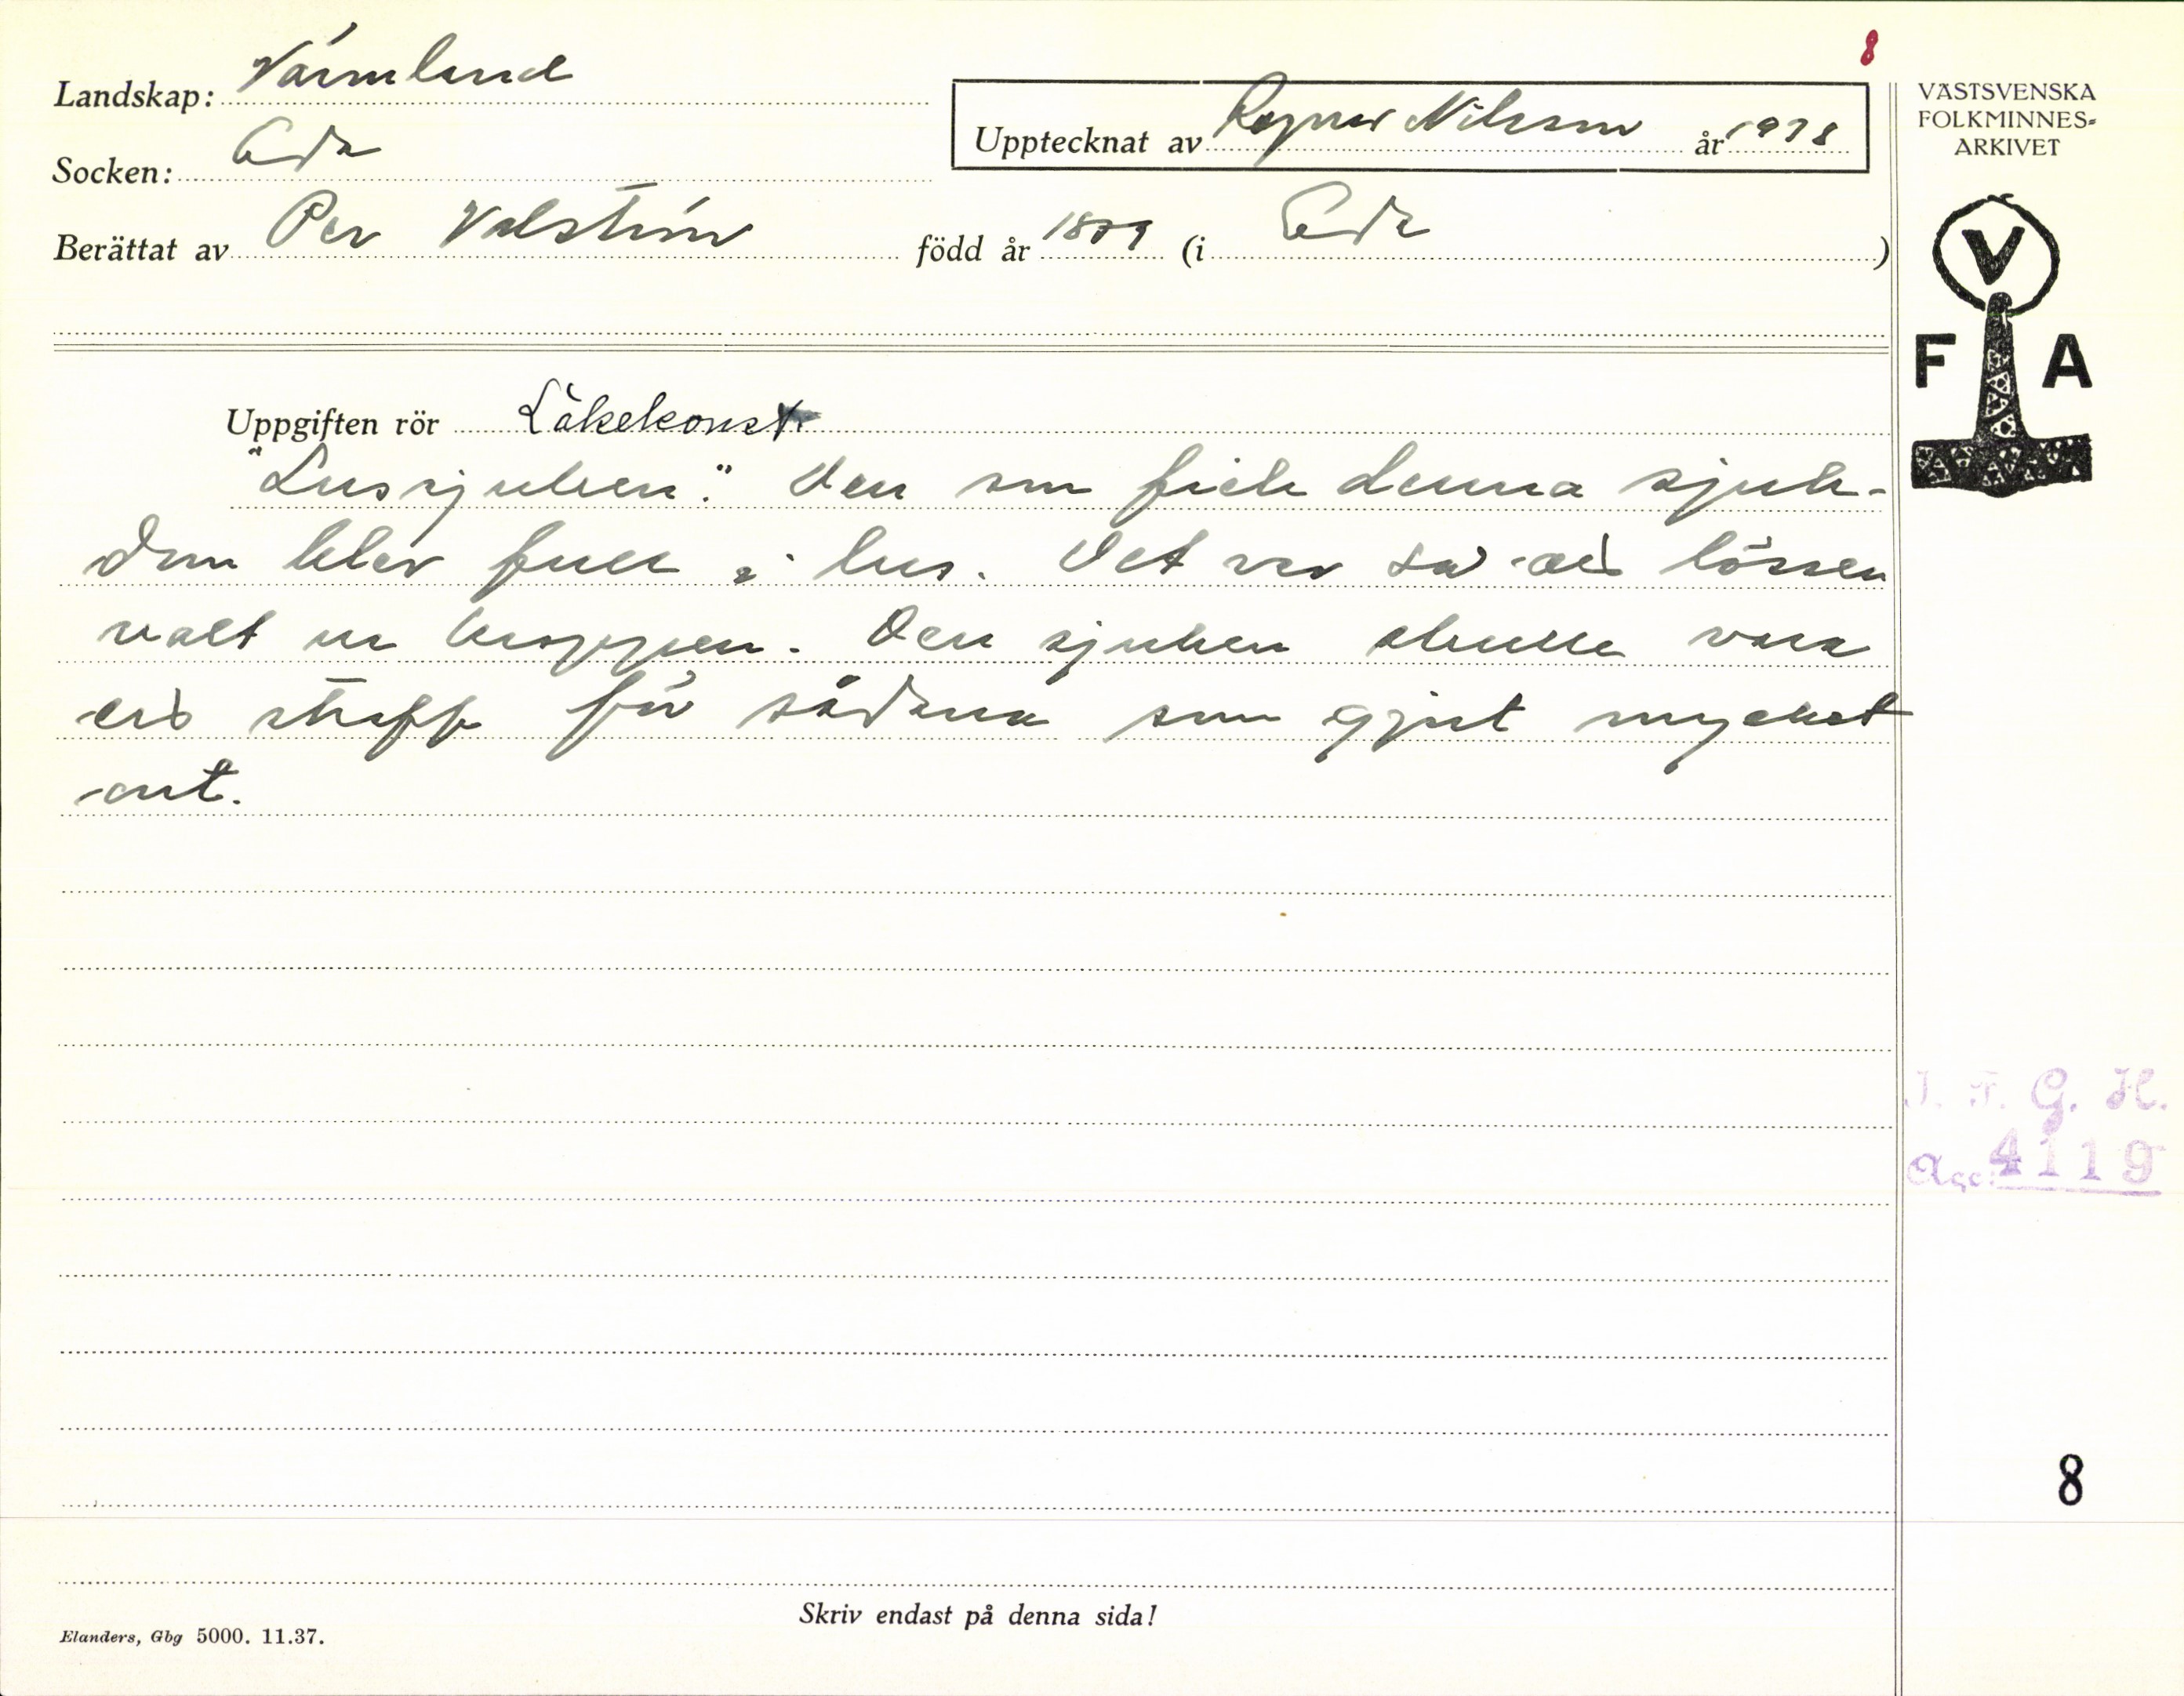 8
Landskap: Värmland
Socken: Eda
Upptecknat av Ragnar Nilsson år 1938
Berättat av Per Valström född år 1879 (i Eda )
VÄSTSVENSKA
FOLKMINNES=
ARKIVET
V
F A
Uppgiften rör Läkekonst
"Lussjuken." Den som fick denna sjuk-
dom blev full i lus. Det var som om lössen
vält ur kroppen. Den sjuken skulle vara
ett straff för sådana som gjort mycket
ont.
I. F. G. H.
Acc: 4119
8
Skriv endast på denna sida!
Elanders, Gbg 5000. 11.37.